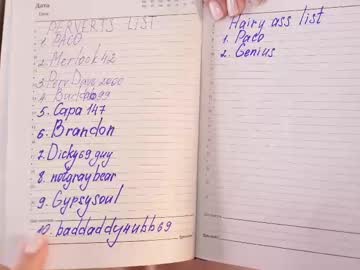 Дата
PERVERTS LIST
1. PACO
2. Merlock42
3. Perv Dave 2000
4. Badabb99
5. Capa 147
6. Brandon
7. Dicky69guy
8. notgraybear
9. Gypsysoul
10. baddaddy4ubb69
Hairy ass list
1. Paco
2. Genius